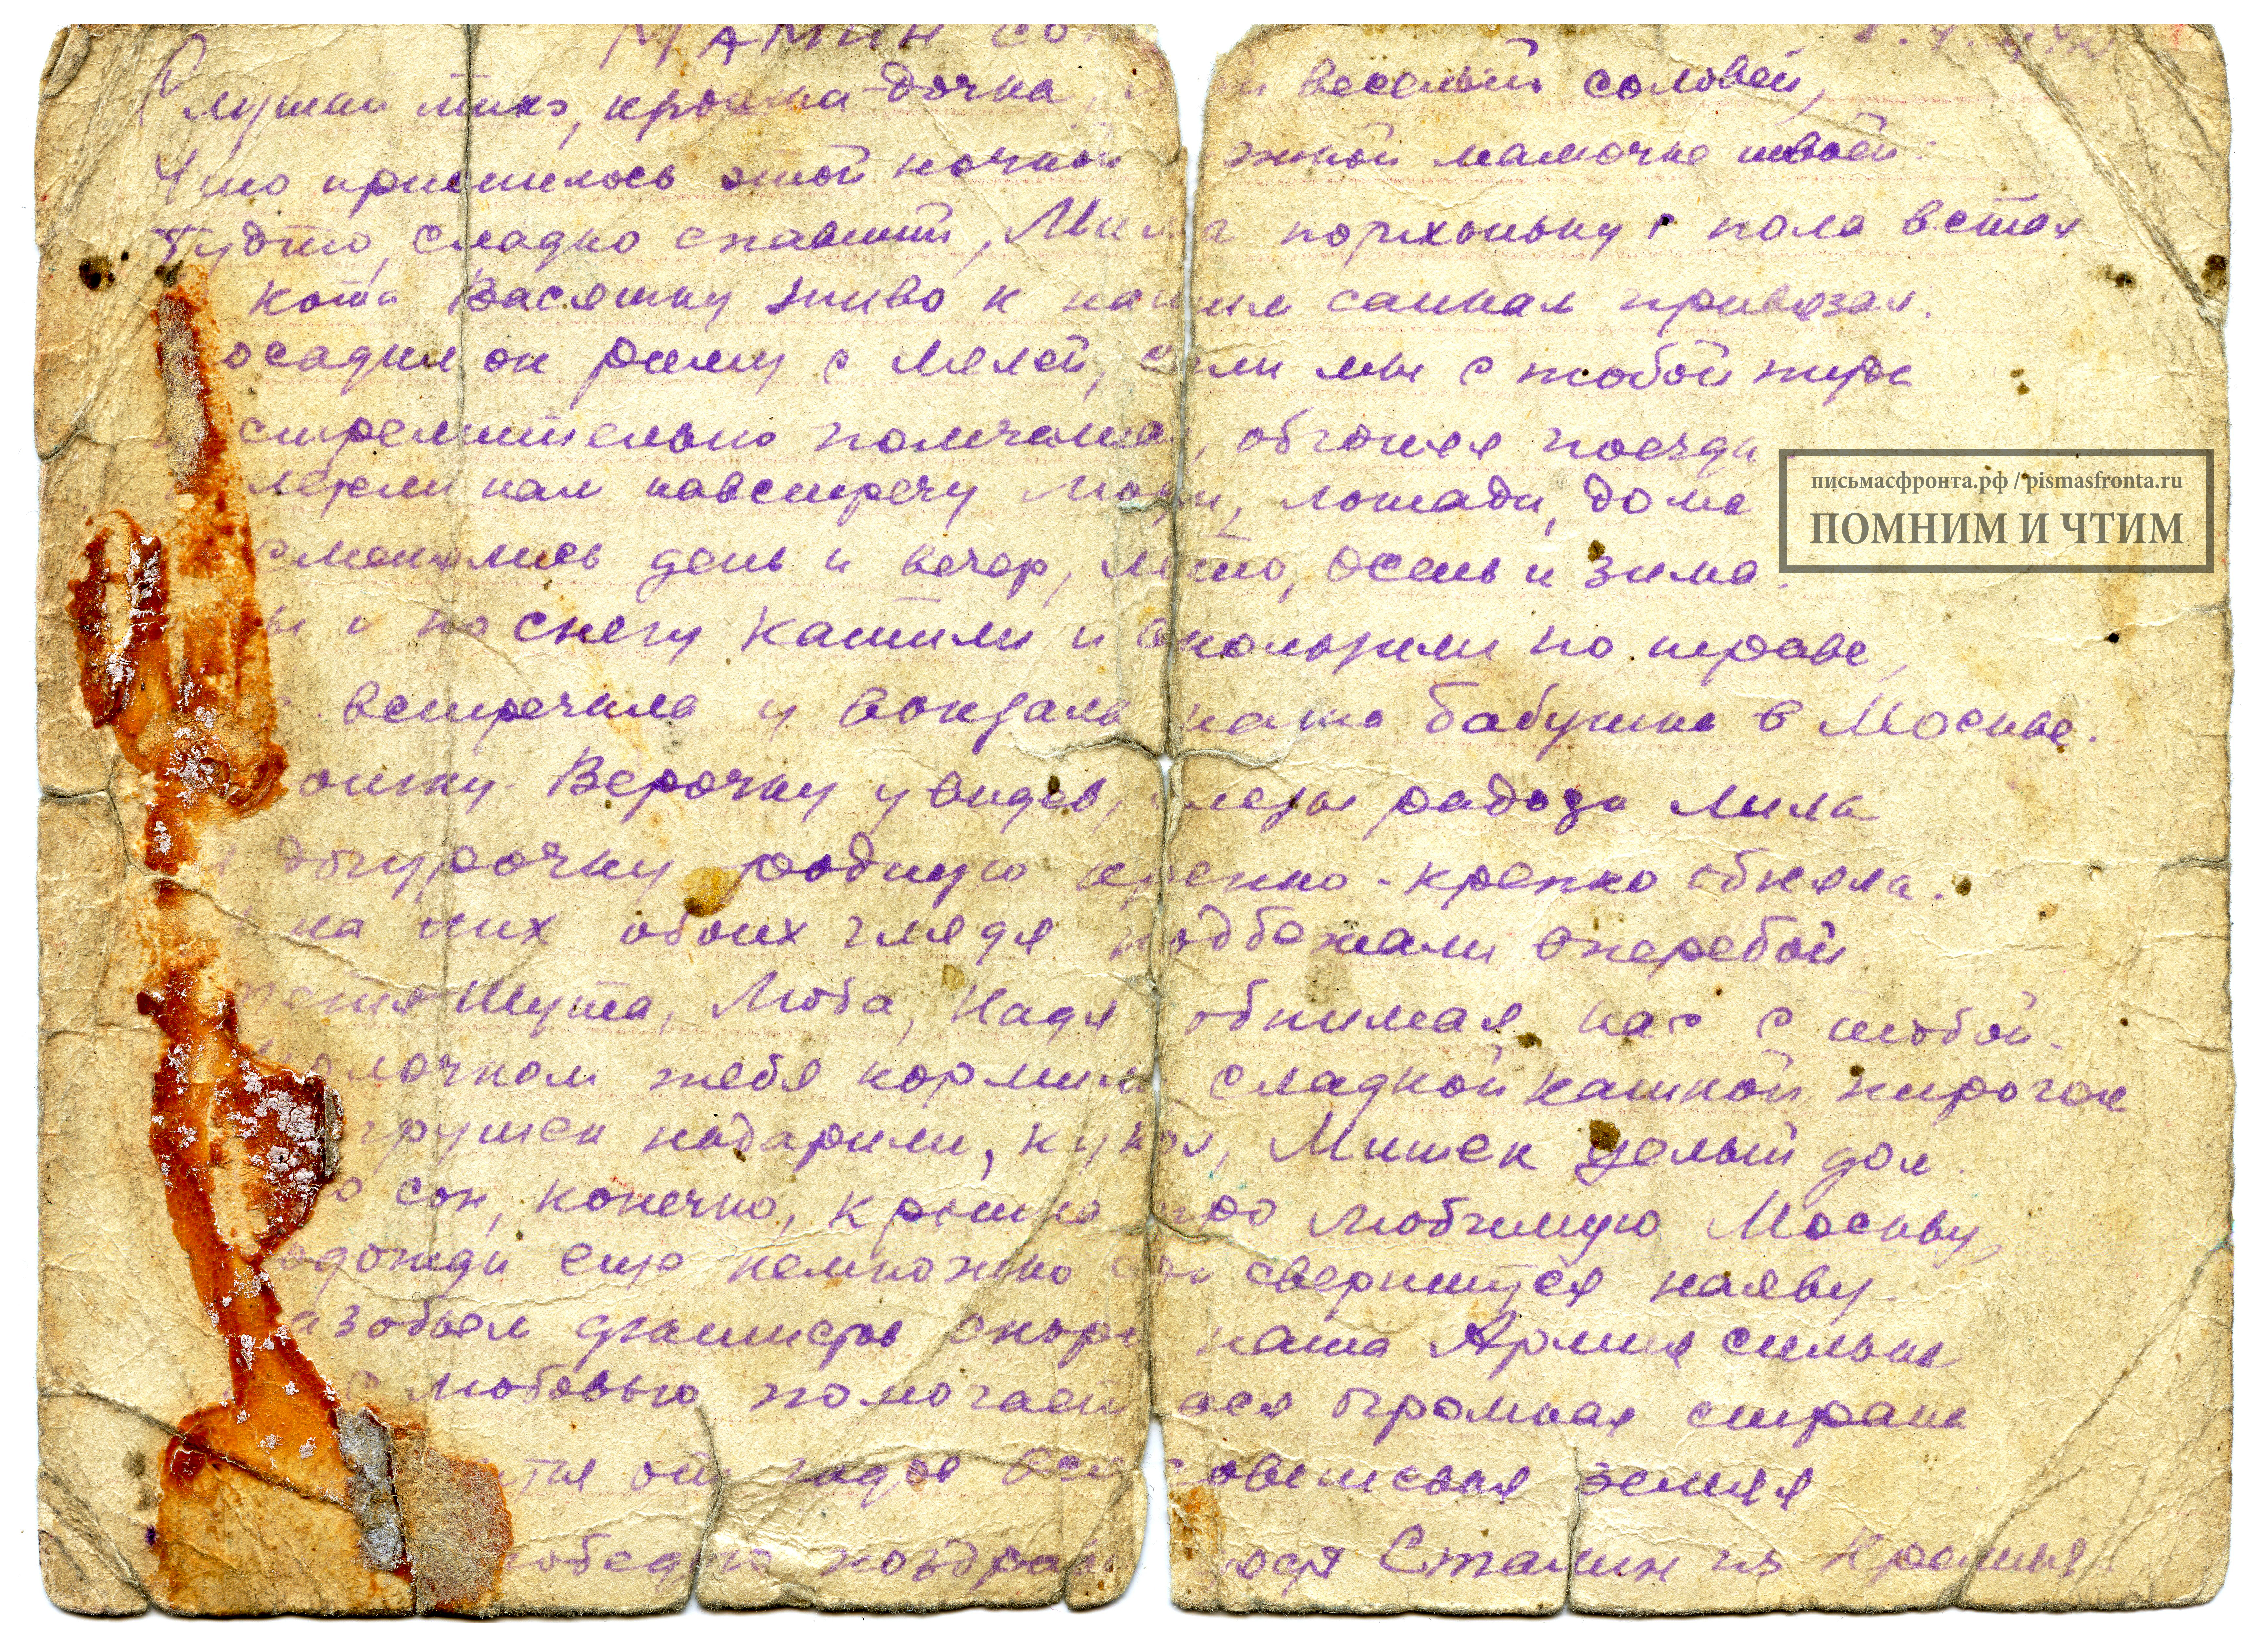 МАМИН СО
Слушай тихо, крошка-дочка, веселый соловей,
Что приснилось этой ночкой мамочке твоей:
Будто, сладко спавший, Миша потихоньку с пола встал
кота Васятку живо к нашим санкам привязал.
осадил он рядом с Лялей, сели мы с тобой туда
стремительно помчались, обгоняя поезда
летели нам навстречу люди, лошади, дома
сменялись день и вечер, лето, осень и зима.
ы и по снегу катили и скользили по траве,
встретила у вокзала наша бабушка в Москве.
Верочку увидев, слезы радости лила
дочурочку родную крепко-крепко обняла.
на них обоих глядя подбежали вперебой
тетя Шута, Люба, Надя обнимая нас с тобой.
молочком тебя кормили сладкой кашкой пирогом
грушек подарили, кукол, Мишек целый дом.
о сон, конечно, крошка про любимую Москву,
одожди еще немножко он свершится наяву.
азобьем фашистов скоро наша Армия сильна
с любовью помогает вся огромная страна
вся советская земля
победою поздравит Сталин из Кремля
письмасфронта.рф / pismasfronta.ru
ПОМНИМ И ЧТИМ